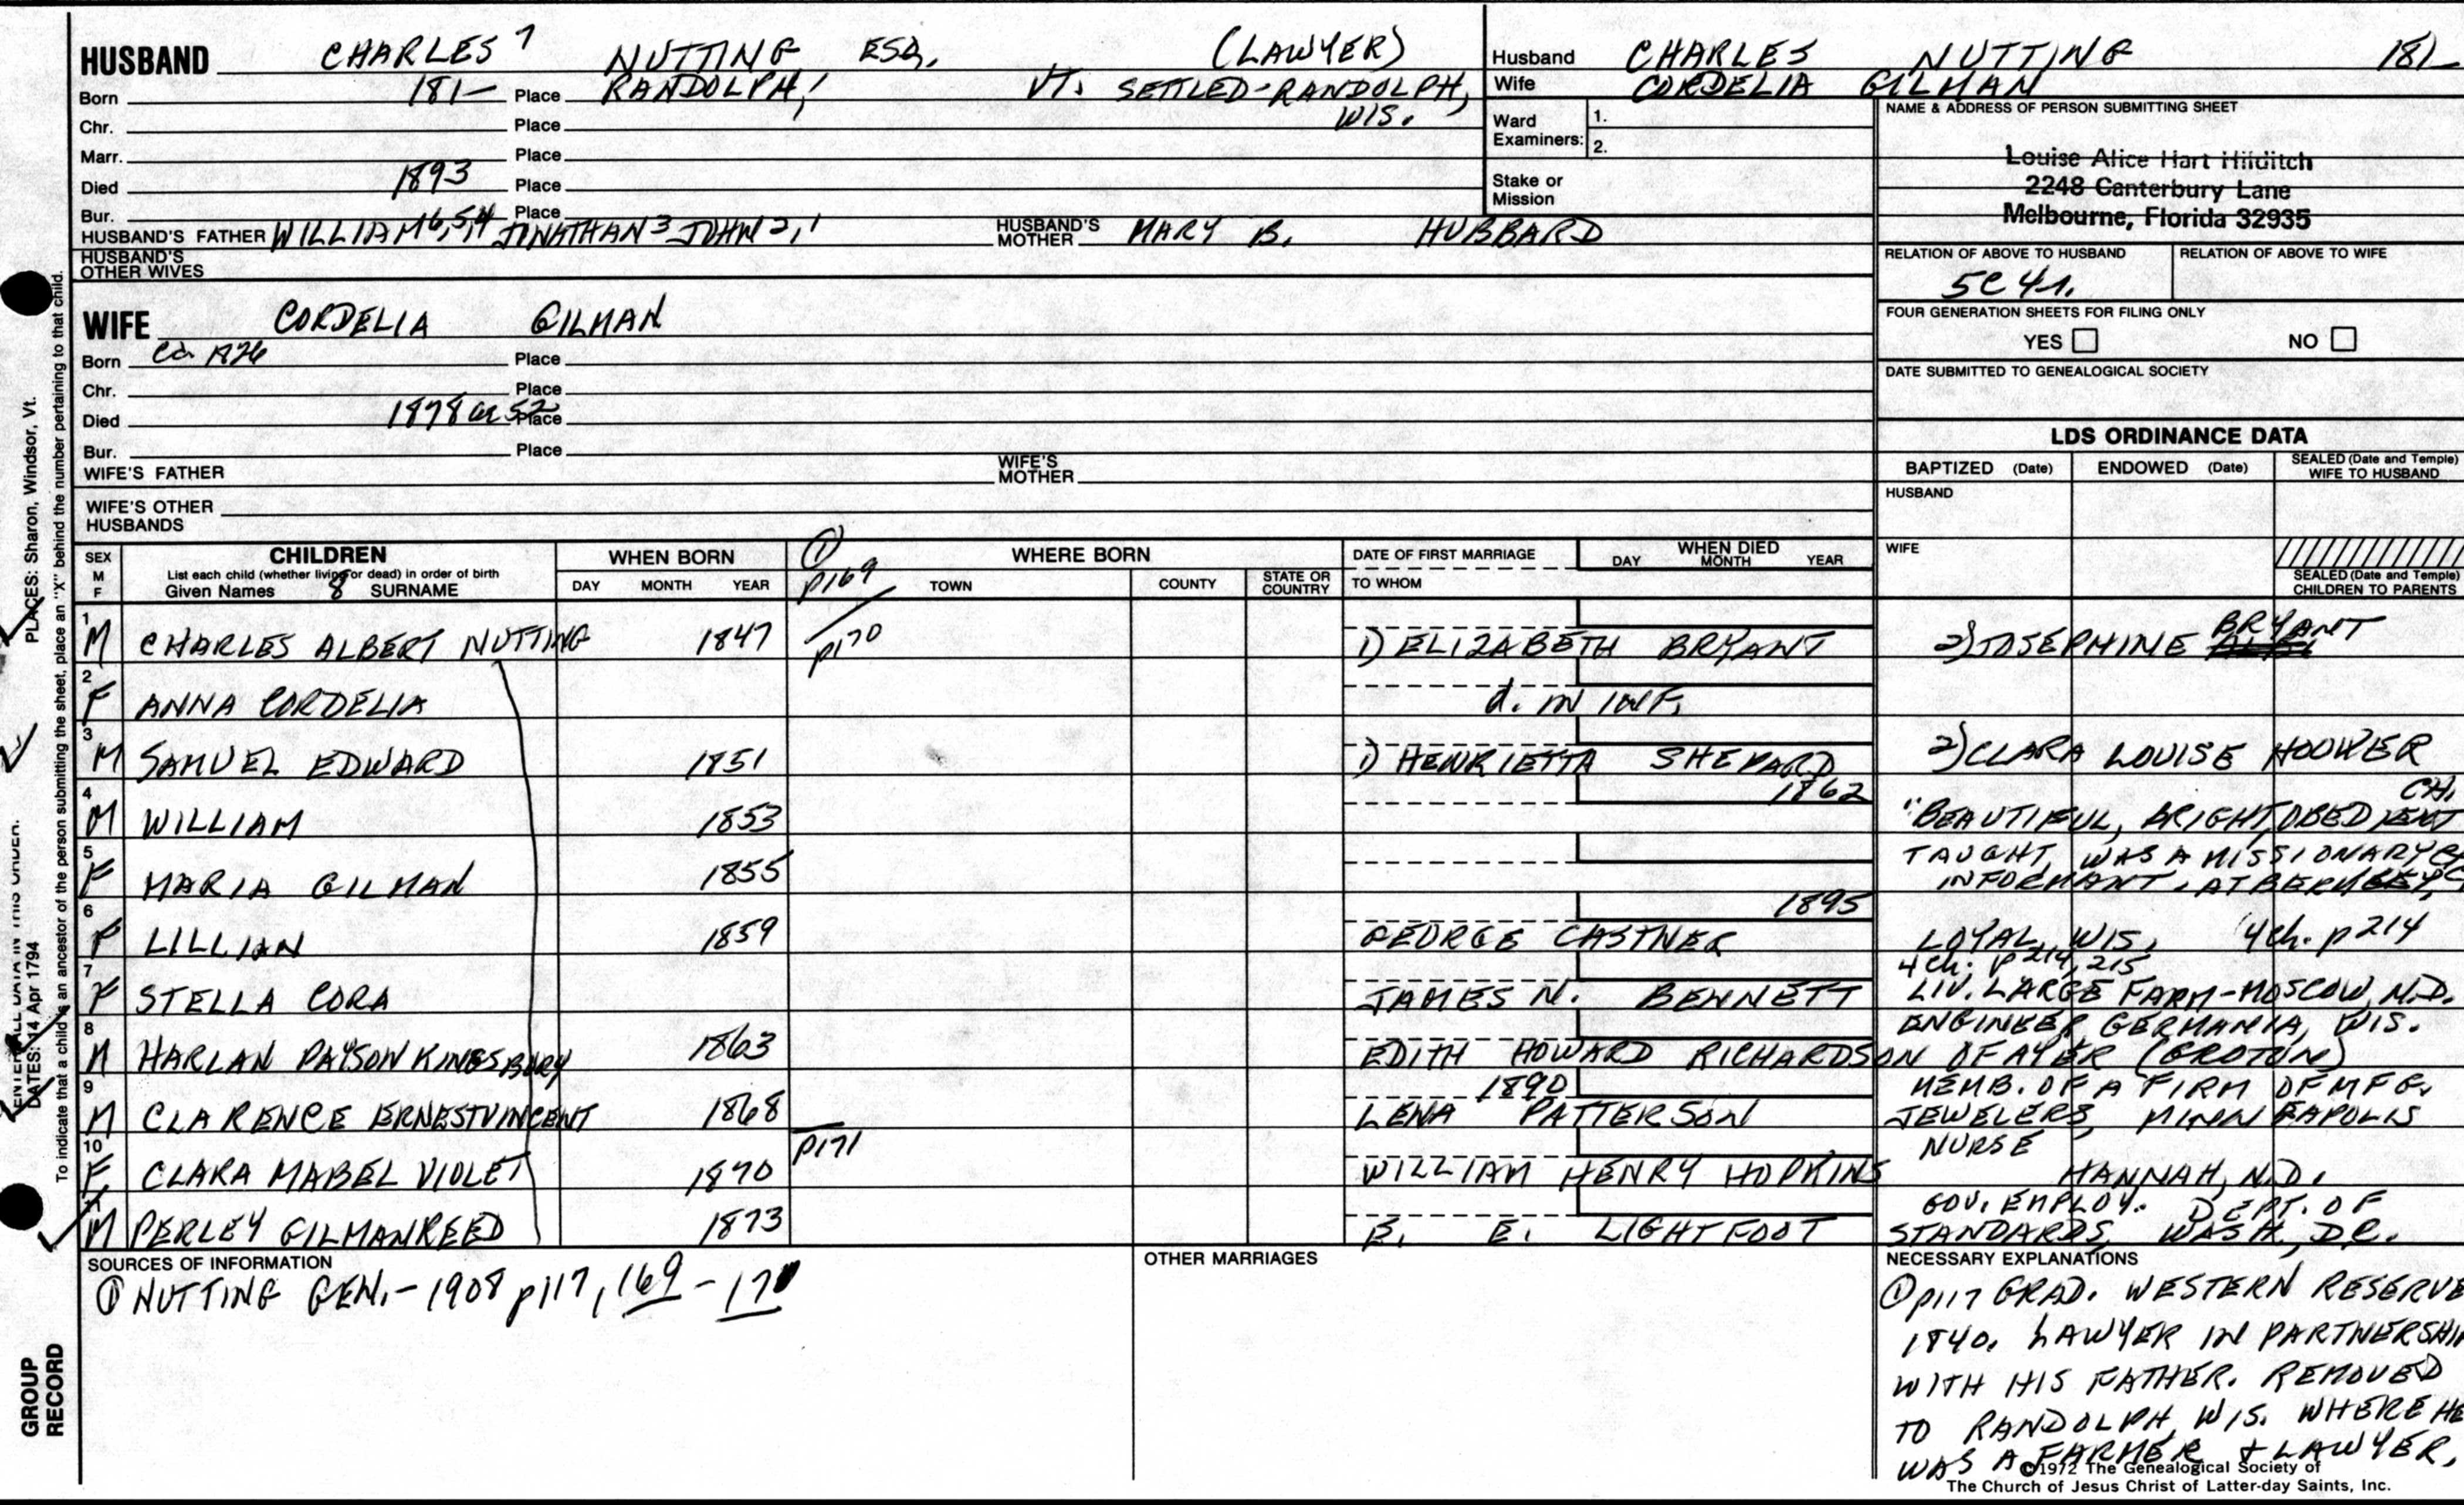 HUSBAND CHARLES 7 NUTTING ESQ. (LAWYER)
Born 181- Place RANDOLPH, VT. SETTLED-RANDOLPH, WIS.
Chr. Place
Marr. Place
Died 1893 Place
Bur. Place
HUSBAND'S FATHER WILLIAM 6,5,4 JONATHAN 3 JOHN 2,1 HUSBAND'S MOTHER MARY B. HUBBARD
HUSBAND'S OTHER WIVES
Husband CHARLES NUTTING 181-
Wife CORDELIA GILMAN
Ward Examiners: 1.
2.
Stake or Mission
NAME & ADDRESS OF PERSON SUBMITTING SHEET
Louise Alice Hart Hilditch
2248 Canterbury Lane
Melbourne, Florida 32935
RELATION OF ABOVE TO HUSBAND RELATION OF ABOVE TO WIFE
5C 4r.
FOUR GENERATION SHEETS FOR FILING ONLY
YES NO
DATE SUBMITTED TO GENEALOGICAL SOCIETY
WIFE CORDELIA GILMAN
Born ca 1826 Place
Chr. Place
Died 1878 ae 52 Place
Bur. Place
WIFE'S FATHER WIFE'S MOTHER
WIFE'S OTHER HUSBANDS
LDS ORDINANCE DATA
BAPTIZED (Date) ENDOWED (Date) SEALED (Date and Temple) WIFE TO HUSBAND
HUSBAND
WIFE
SEALED (Date and Temple) CHILDREN TO PARENTS
SEX M F CHILDREN WHEN BORN ① WHERE BORN DATE OF FIRST MARRIAGE WHEN DIED
List each child (whether living or dead) in order of birth
Given Names 8 SURNAME DAY MONTH YEAR p169 TOWN COUNTY STATE OR COUNTRY TO WHOM DAY MONTH YEAR
1 M CHARLES ALBERT NUTTING 1847 p170 1) ELIZABETH BRYANT 2) JOSEPHINE BRYANT
2 F ANNA CORDELIA d. in INF.
3 M SAMUEL EDWARD 1851 1) HENRIETTA SHEPARD 2) CLARA LOUISE HOOVER
4 M WILLIAM 1853 1862 "BEAUTIFUL, BRIGHT, OBEDIENT CH.
5 F MARIA GILMAN 1855 TAUGHT, WAS A MISSIONARY
INFORMANT. AT
6 F LILLIAN 1859 1895 GEORGE CASTNER LOYAL, WIS, 4 ch. p 214
7 F STELLA CORA JAMES N. BENNETT 4 ch; p 214, 215
LIV. LARGE FARM-MOSCOW, N.D.
8 M HARLAN PAYSON KINGSBURY 1863 EDITH HOWARD RICHARDSON OF AYER (GROTON)
ENGINEER, GERMANIA, WIS.
9 M CLARENCE ERNEST VINCENT 1868 1890 LENA PATTERSON MEMB. OF A FIRM OF MFG.
JEWELERS, MINNEAPOLIS
10 F CLARA MABEL VIOLET 1870 p171 WILLIAM HENRY HOPKINS NURSE
HANNAH, N.D.
11 M PERLEY GILMAN REED 1873 B. E. LIGHTFOOT GOV. EMPLOY. DEPT. OF
STANDARDS, WASH. D.C.
SOURCES OF INFORMATION
① NUTTING GEN.-1908 p117, 169-171
OTHER MARRIAGES
NECESSARY EXPLANATIONS
① p117 GRAD. WESTERN RESERVE
1840. LAWYER IN PARTNERSHIP
WITH HIS FATHER. REMOVED
TO RANDOLPH, WIS. WHERE HE
WAS A FARMER & LAWYER,
©1972 The Genealogical Society of
The Church of Jesus Christ of Latter-day Saints, Inc.
PLACES: Sharon, Windsor, Vt.
ENTER ALL DATA IN THIS ORDER:
DATES: 14 Apr 1794
To indicate that a child is an ancestor of the person submitting the sheet, place an "X" behind the number pertaining to that child.
GROUP RECORD